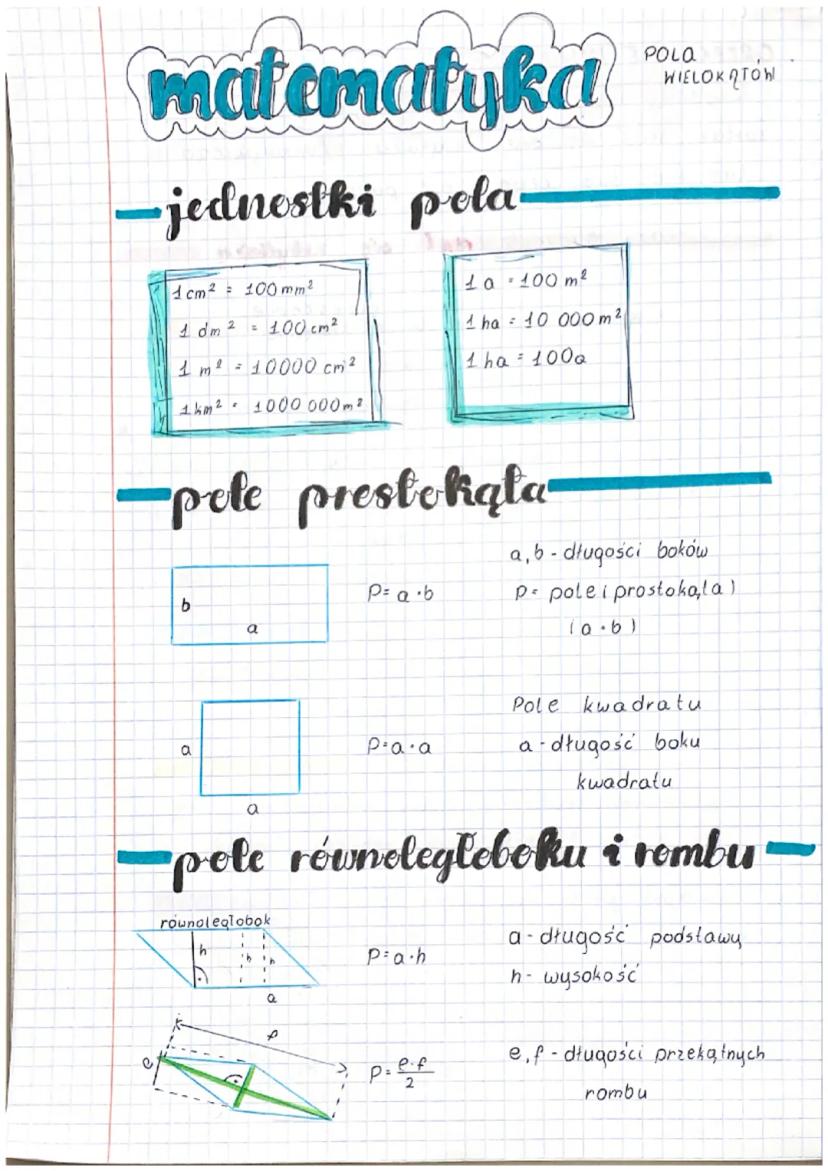 matematyka
POLA
WIELOKĄTÓW
jednostki pola
1 cm² = 100 mm²
1 dm² = 100 cm²
1 m² = 10000 cm²
1 km² = 1000 000 m²
1 a = 100 m²
1 ha = 10 000 m²
1 ha = 100a
pole prostokąta
b
a
P = a · b
a, b - długości boków
P = pole (prostokąta)
(a · b)
a
a
P = a · a
Pole kwadratu
a - długość boku
kwadratu
pole równoległoboku i rombu
równoległobok
h
h
h
a
P = a · h
a - długość podstawy
h - wysokość
e
f
P = e·f
2
e, f - długości przekątnych
rombu